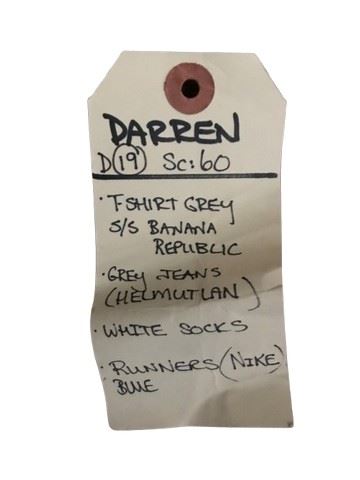 DARREN
D 19' SC:60
· T-SHIRT GREY
S/S BANANA
REPUBLIC
· GREY JEANS
(HELMUTLAN)
· WHITE SOCKS
· RUNNERS (NIKE)
BLUE